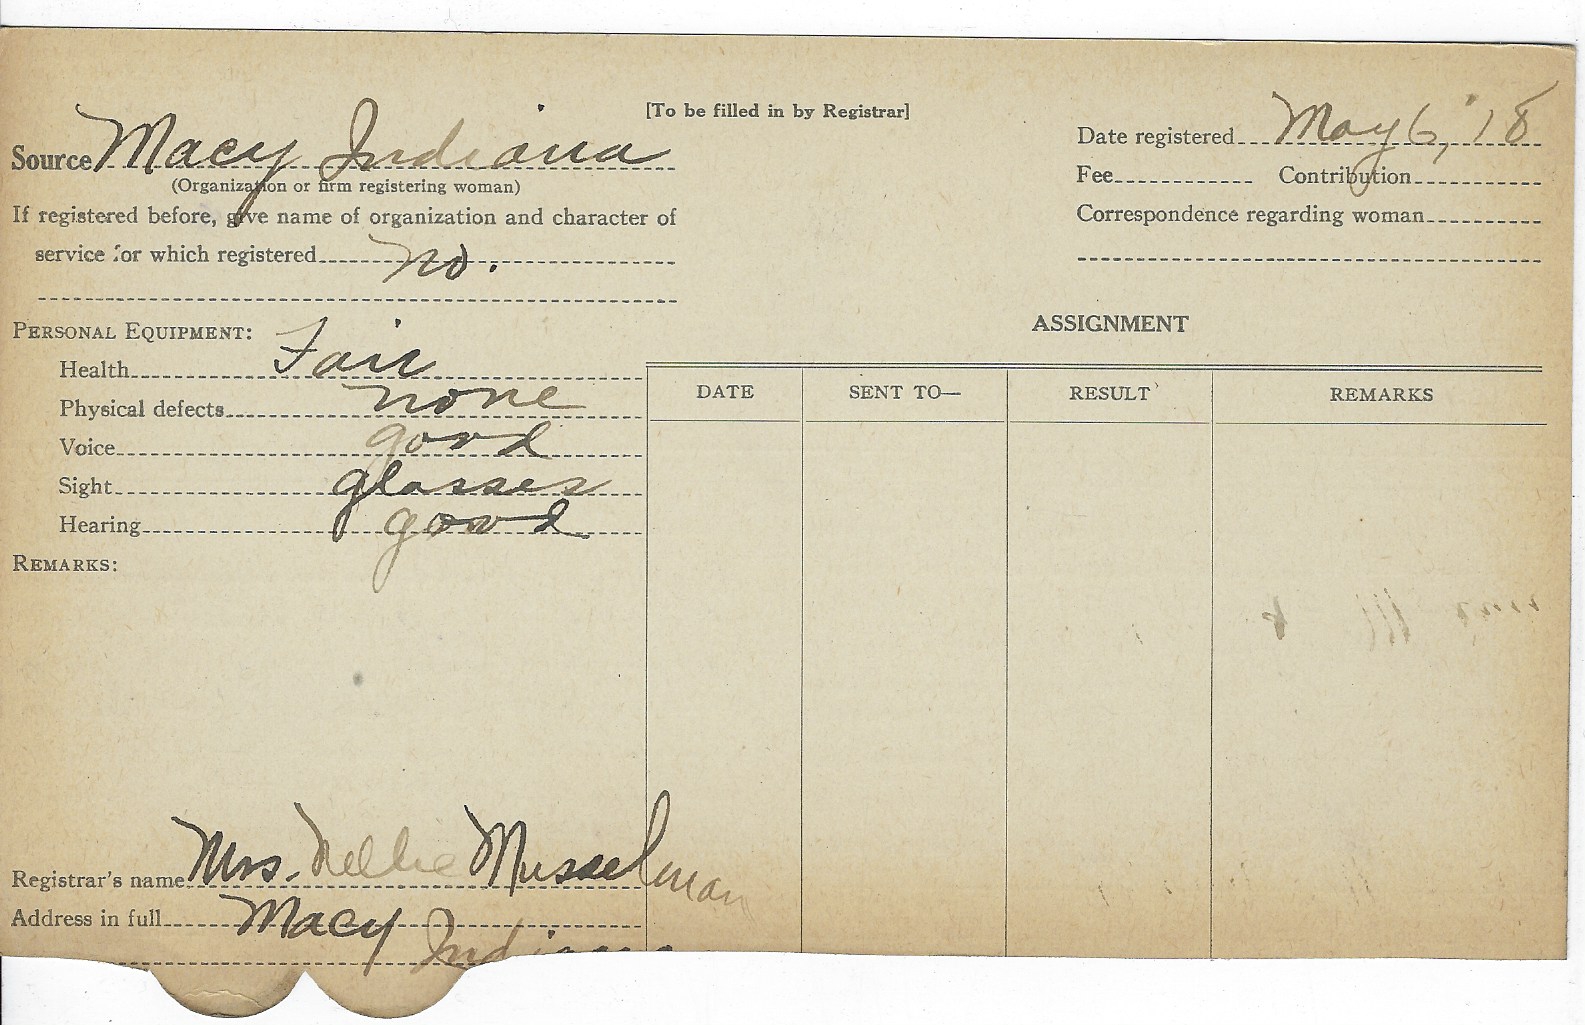 [To be filled in by Registrar]
Source Macy Indiana
(Organization or firm registering woman)
If registered before, give name of organization and character of
service for which registered no.
Date registered May 6, '18
Fee Contribution
Correspondence regarding woman
PERSONAL EQUIPMENT:
Health Fair
Physical defects none
Voice good
Sight glasses
Hearing good
REMARKS:
ASSIGNMENT
DATE SENT TO— RESULT REMARKS
Registrar's name Mrs. Nellie Musselman
Address in full Macy
Indiana